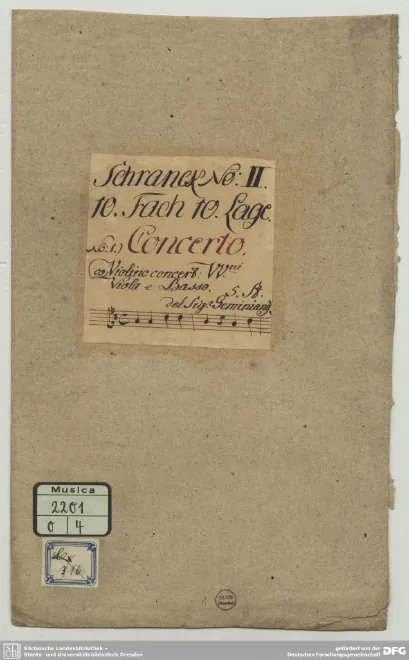 Schranck No: II.
10. Fach 10. Lage.
No: 1.) Concerto.
co Violino concert: VV.ni
Viola e Basso. 5. St.
del Sigr. Geminiani.
Musica
2201
O 4
Sächsische Landesbibliothek -
Staats- und Universitätsbibliothek Dresden
gefördert von der
Deutschen Forschungsgemeinschaft
DFG